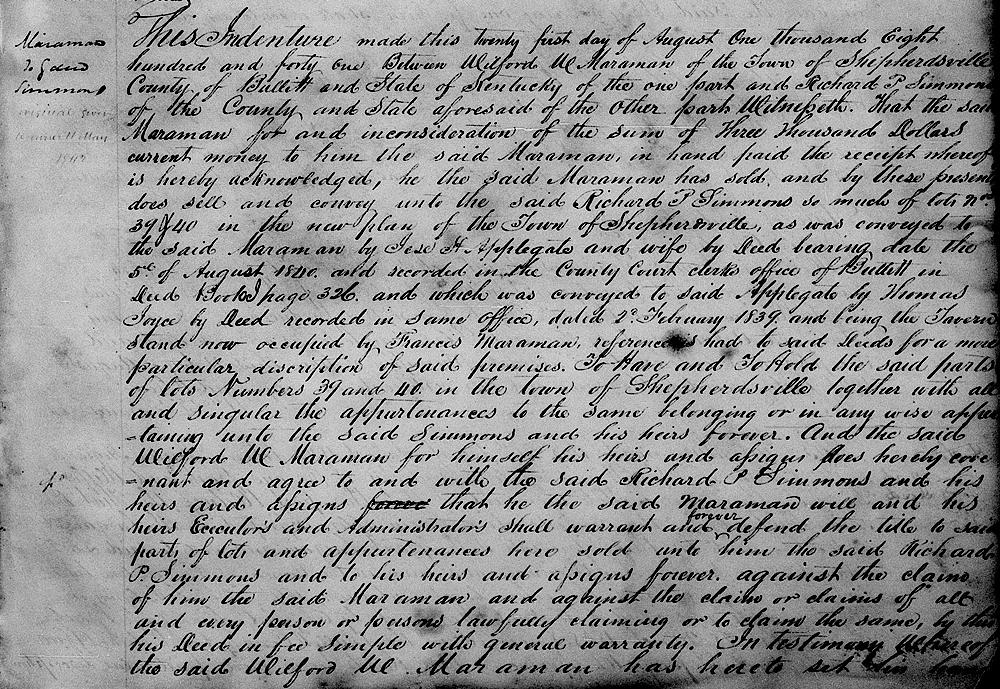 Maraman
To Deed
Simmons
This Indenture made this twenty first day of August One thousand Eight
hundred and forty one Between Wilford W Maraman of the Town of Shepherdsville
County of Bullitt and State of Kentucky of the one part and Richard P Simmons
of the County and State aforesaid of the other part Witnesseth. That the said
Maraman for and inconsideration of the sum of Three Thousand Dollars
current money to him the said Maraman, in hand paid the receipt whereof
is hereby acknowledged, he the said Maraman has sold, and by these present
does sell and convey unto the said Richard P Simmons so much of lots Nos
39 & 40 in the new plan of the Town of Shepherdsville, as was conveyed to
the said Maraman by Jese H Applegate and wife by Deed bearing date the
5th of August 1840. and recorded in the County Court clerks office of Bullitt in
Deed Book I page 326. and which was conveyed to said Applegate by Thomas
Joyce by Deed recorded in same office, dated 2d February 1839 and being the Tavern
stand now occupied by Francis Maraman, reference is had to said Deeds for a more
particular discription of said premises. To Have and To Hold the said parts
of lots Numbers 39 and 40. in the town of Shepherdsville together with all
and singular the appurtenances to the same belonging or in any wise apper
=taining unto the said Simmons and his heirs forever. And the said
Wilford W Maraman for himself his heirs and assigns does hereby cove
=nant and agree to and with the said Richard P Simmons and his
heirs and assigns forever that he the said Maraman will and his
heirs Executors and Administrators shall warrant and forever defend the title to said
parts of lots and appurtenances here sold unto him the said Richard
P. Simmons and to his heirs and assigns forever. against the claim
of him the said Maraman and against the claim or claims of all
and every person or persons lawfully claiming or to claim the same, by this
his Deed in fee simple with general warranty. In testimony Whereof
the said Wilford W. Maraman has hereto set his hand